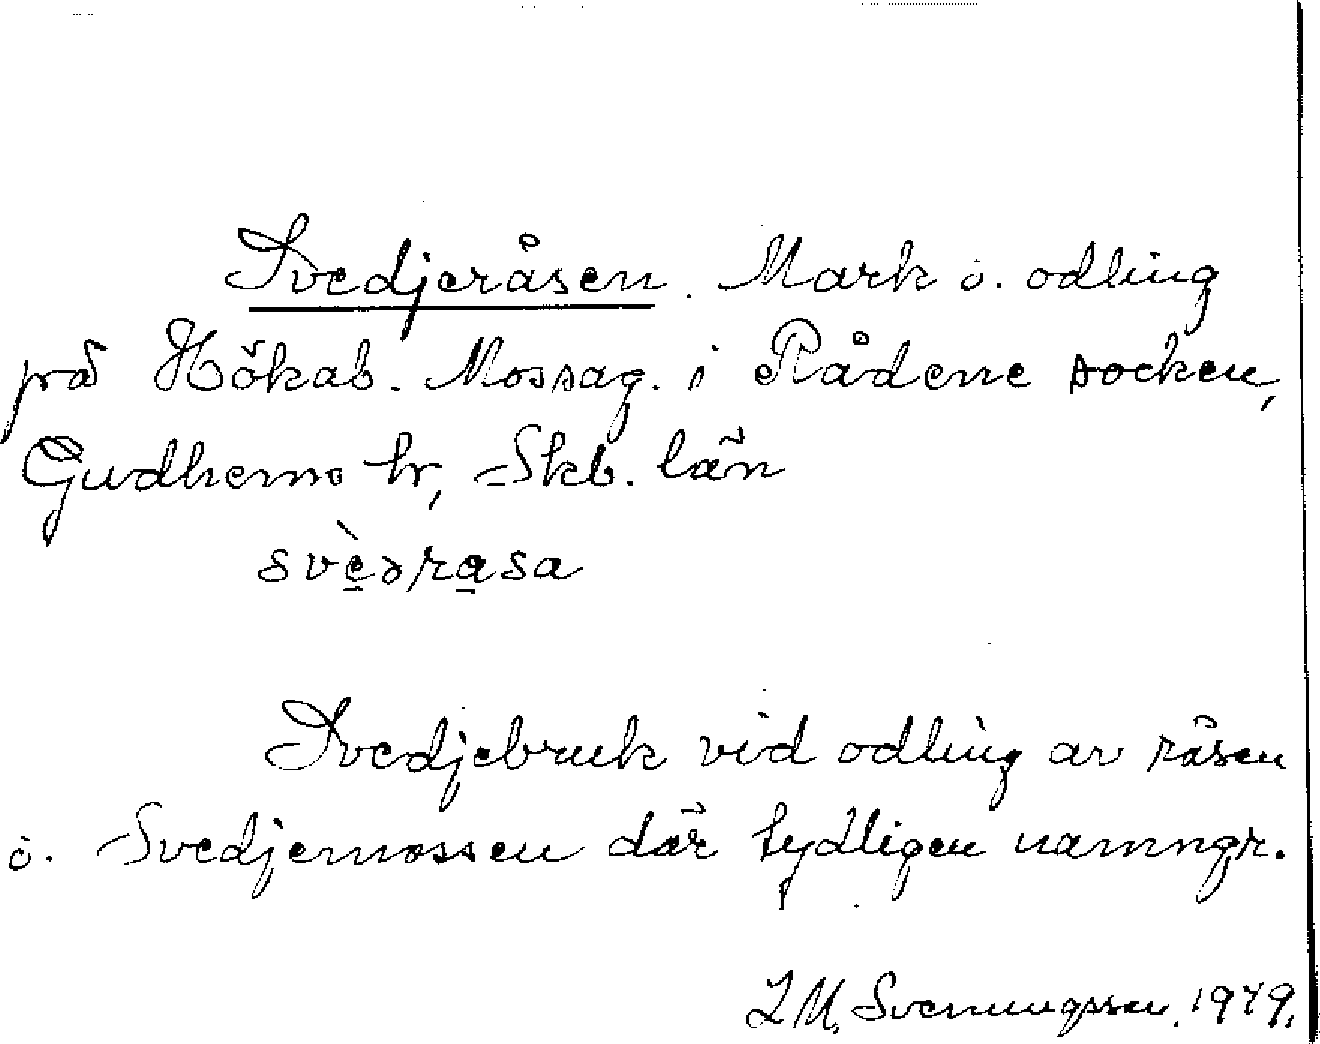 Svedjeråsen. Mark o. odling
på Hökab. Mossag. i Rådene socken,
Gudhems hr, Skb. län
svè̱əra̱sa
Svedjebruk vid odling av råsen
o. Svedjemossen där tydligen namngr.
I M. Svenungsson. 1949.